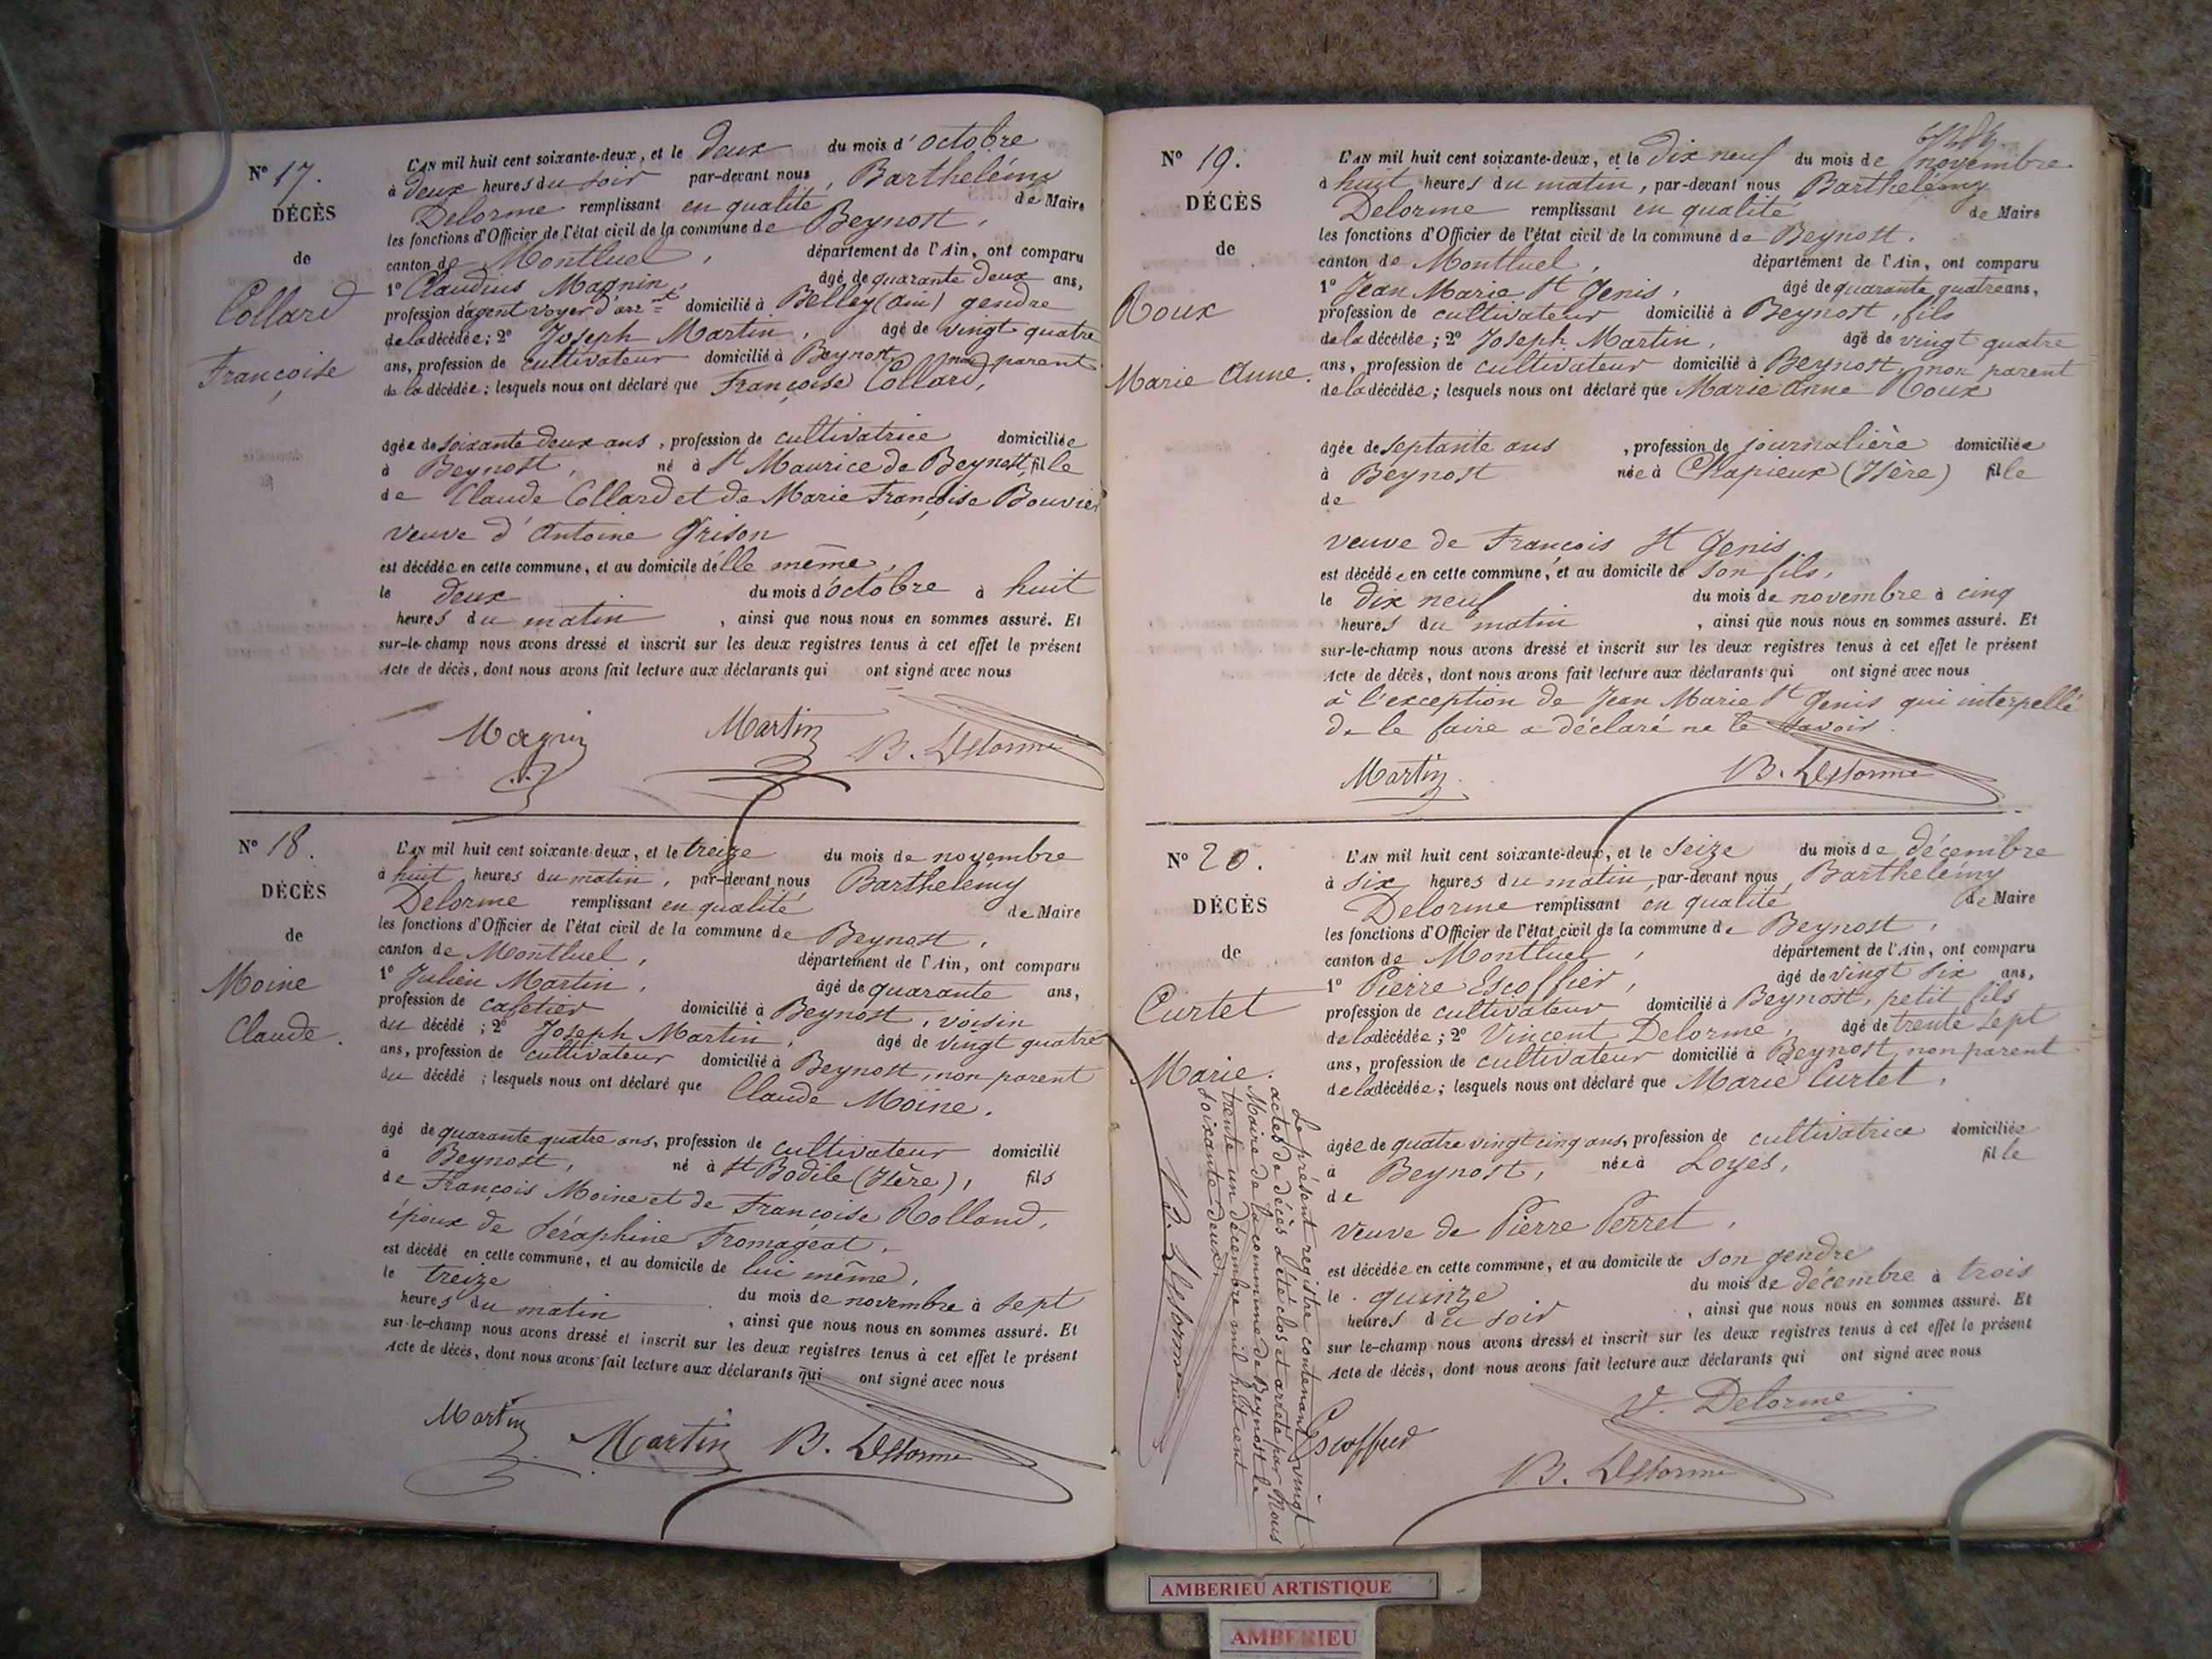 N° 17.
DÉCÈS
de
Collard
Françoise
L'AN mil huit cent soixante-deux, et le deux du mois d'octobre
à deux heures du soir par-devant nous, Barthelémy
Delorme remplissant en qualité de Maire
les fonctions d'Officier de l'état civil de la commune de Beynost,
canton de Montluel, département de l'Ain, ont comparu
1° Claudius Magnin, âgé de quarante deux ans,
profession d'agent voyer d'arr.t domicilié à Belley (Ain) gendre
de la décédée; 2° Joseph Martin, âgé de vingt quatre
ans, profession de cultivateur domicilié à Beynost, non parent
de la décédée; lesquels nous ont déclaré que Françoise Collard,
âgée de soixante deux ans, profession de cultivatrice domiciliée
à Beynost, né à St Maurice de Beynost, fille
de Claude Collard et de Marie Françoise Bouvier
veuve d'Antoine Grison
est décédée en cette commune, et au domicile d'elle même,
le deux du mois d'octobre à huit
heures du matin, ainsi que nous nous en sommes assuré. Et
sur-le-champ nous avons dressé et inscrit sur les deux registres tenus à cet effet le présent
Acte de décès, dont nous avons fait lecture aux déclarants qui ont signé avec nous
Magnin Martin B. Delorme
N° 18.
DÉCÈS
de
Moine
Claude.
L'AN mil huit cent soixante-deux, et le treize du mois de novembre
à huit heures du matin, par-devant nous Barthelémy
Delorme remplissant en qualité de Maire
les fonctions d'Officier de l'état civil de la commune de Beynost,
canton de Montluel, département de l'Ain, ont comparu
1° Julien Martin, âgé de quarante ans,
profession de cafetier domicilié à Beynost, voisin
du décédé; 2° Joseph Martin, âgé de vingt quatre
ans, profession de cultivateur domicilié à Beynost, non parent
du décédé; lesquels nous ont déclaré que Claude Moine.
âgé de quarante quatre ans, profession de cultivateur domicilié
à Beynost, né à St Bodile (Isère), fils
de François Moine et de Françoise Rolland,
époux de Séraphine Fromageat,
est décédé en cette commune, et au domicile de lui même,
le treize du mois de novembre à sept
heures du matin, ainsi que nous nous en sommes assuré. Et
sur-le-champ nous avons dressé et inscrit sur les deux registres tenus à cet effet le présent
Acte de décès, dont nous avons fait lecture aux déclarants qui ont signé avec nous
Martin Martin B. Delorme
N° 19.
DÉCÈS
de
Roux
Marie Anne.
L'AN mil huit cent soixante-deux, et le dix neuf du mois de novembre
à huit heures du matin, par-devant nous Barthelémy
Delorme remplissant en qualité de Maire
les fonctions d'Officier de l'état civil de la commune de Beynost.
canton de Montluel, département de l'Ain, ont comparu
1° Jean Marie St Genis, âgé de quarante quatre ans,
profession de cultivateur domicilié à Beynost, fils
de la décédée; 2° Joseph Martin, âgé de vingt quatre
ans, profession de cultivateur domicilié à Beynost, non parent
de la décédée; lesquels nous ont déclaré que Marie Anne Roux
âgée de septante ans, profession de journalière domiciliée
à Beynost née à Chapieux (Isère) fille
de
veuve de François St Genis
est décédée en cette commune, et au domicile de son fils,
le dix neuf du mois de novembre à cinq
heures du matin, ainsi que nous nous en sommes assuré. Et
sur-le-champ nous avons dressé et inscrit sur les deux registres tenus à cet effet le présent
Acte de décès, dont nous avons fait lecture aux déclarants qui ont signé avec nous
à l'exception de Jean Marie St Genis qui interpellé
de le faire a déclaré ne le savoir.
Martin B. Delorme
N° 20.
DÉCÈS
de
Curtet
Marie.
L'AN mil huit cent soixante-deux, et le seize du mois de décembre
à six heures du matin, par-devant nous Barthelémy
Delorme remplissant en qualité de Maire
les fonctions d'Officier de l'état civil de la commune de Beynost,
canton de Montluel, département de l'Ain, ont comparu
1° Pierre Escoffier, âgé de vingt six ans,
profession de cultivateur domicilié à Beynost, petit fils
de la décédée; 2° Vincent Delorme, âgé de trente sept
ans, profession de cultivateur domicilié à Beynost, non parent
de la décédée; lesquels nous ont déclaré que Marie Curtet,
âgée de quatre vingt cinq ans, profession de cultivatrice domiciliée
à Beynost, née à Loyes, fille
de
veuve de Pierre Perret,
est décédée en cette commune, et au domicile de son gendre
le quinze du mois de décembre à trois
heures du soir, ainsi que nous nous en sommes assuré. Et
sur le-champ nous avons dressé et inscrit sur les deux registres tenus à cet effet le présent
Acte de décès, dont nous avons fait lecture aux déclarants qui ont signé avec nous
V. Delorme
Escoffier
B. Delorme
Le présent registre contenant vingt
actes de décès a été clos et arrêté par Nous
Maire de la commune de Beynost le
trente un décembre mil huit cent
soixante deux.
B. Delorme
AMBERIEU ARTISTIQUE
AMBERIEU